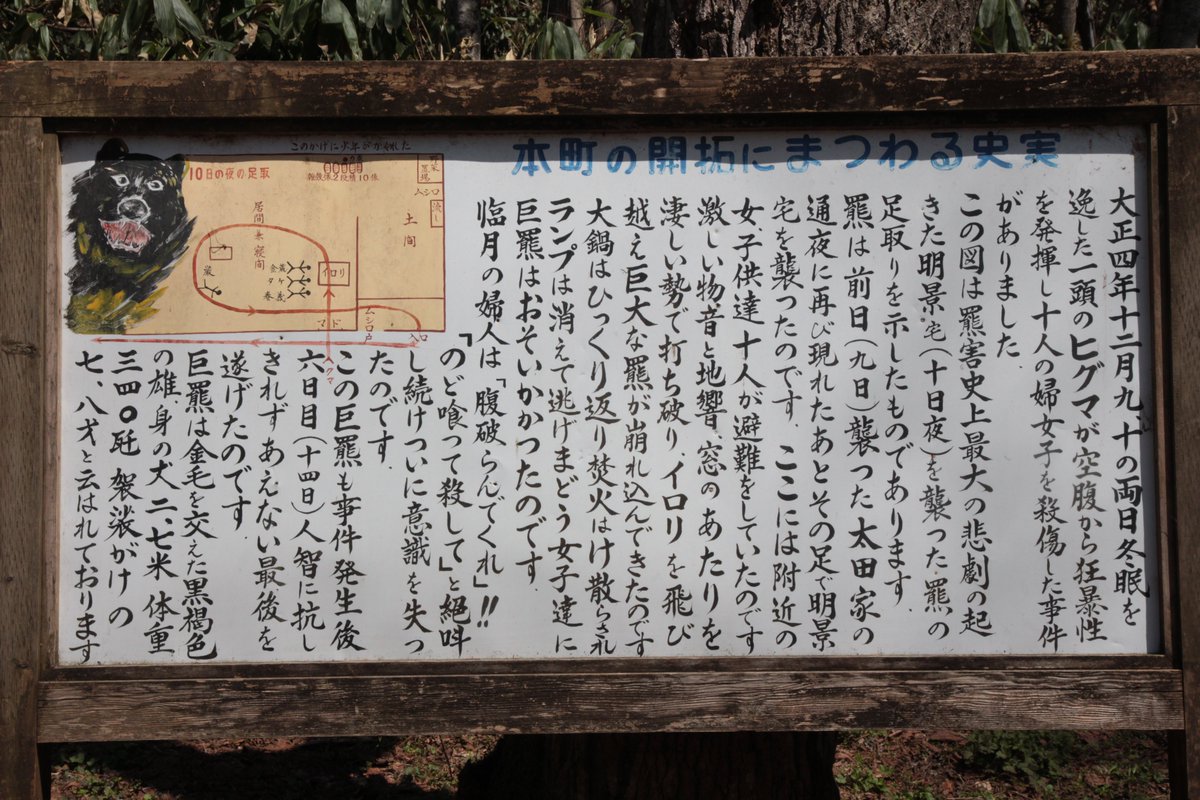 本町の開拓にまつわる史実
大正四年十二月九、十の両日冬眠を
逸した一頭のヒグマが空腹から狂暴性
を発揮し十人の婦女子を殺傷した事件
がありました
この図は羆害史上最大の悲劇の起
きた明景宅(十日夜)を襲った羆の
足取りを示したものであります
羆は前日(九日)襲った太田家の
通夜に再び現れたあとその足で明景
宅を襲ったのです ここには附近の
女、子供達十人が避難をしていたのです
激しい物音と地響、窓のあたりを
凄しい勢で打ち破り、イロリを飛び
越え巨大な羆が崩れ込んできたのです
大鍋はひっくり返り焚火はけ散らされ
ランプは消えて逃げまどう女子達に
巨羆はおそいかかつたのです
臨月の婦人は「腹破らんでくれ」!!
「のど喰って殺して」と絕叫
し続けついに意識を失っ
たのです
この巨羆も事件発生後
六日目(十四日)人智に抗し
きれずあえない最後を
遂げたのです
巨羆は金毛を交えた黒褐色
の雄身の丈二、七米 体重
三四〇瓩 袈裟がけの
七、八才と云はれております
このかげに少年がかくれた
10日の夜の足取
雑穀俵2段積10俵
野菜置場
ムシロ
流し
土間
居間兼寝間
イロリ
マド
ムシロ戸
入口
クマ